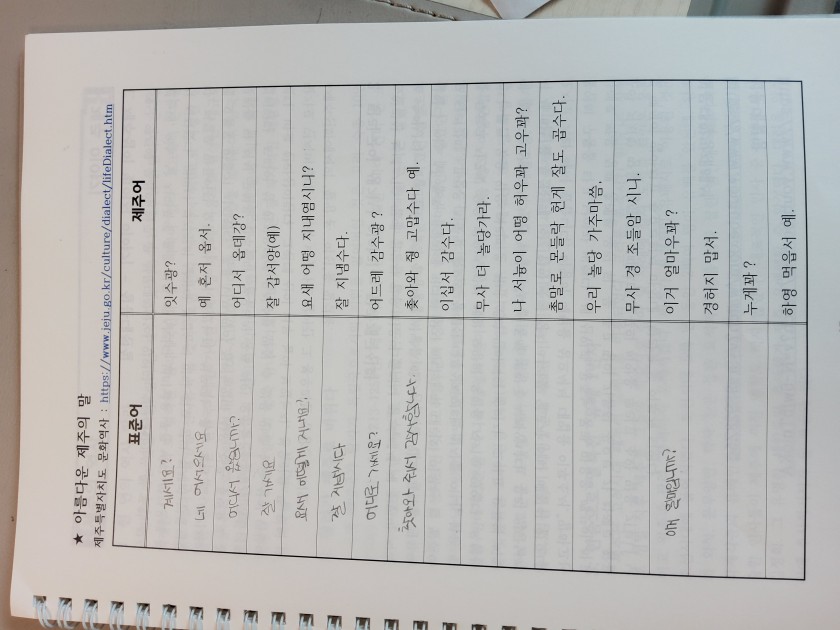 ★ 아름다운 제주의 말
제주특별자치도 문화역사 : https://www.jeju.go.kr/culture/dialect/lifeDialect.htm
표준어 제주어
계세요? 잇수광?
네 어서오세요 예 혼저 옵서.
어디서 왔습니까? 어디서 옵데강?
잘 가세요 잘 갑서양(예)
요새 어떻게 지내요? 요새 어떵 지내염시니?
잘 지냅니다 잘 지냄수다.
어디로 가세요? 어드레 감수광?
찾아와 주셔 감사합니다. 촞아와 줭 고맙수다 예.
이십서 감수다.
무사 더 놀당가라.
나 서늉이 어떵 허우꽈 고우꽈?
촘말로 몬들락 헌게 잘도 곱수다.
우리 놀당 가주마씀.
무사 경 조들암 시니.
이게 얼마입니까? 이거 얼마우꽈?
경허지 맙서.
누게꽈?
하영 먹읍서 예.